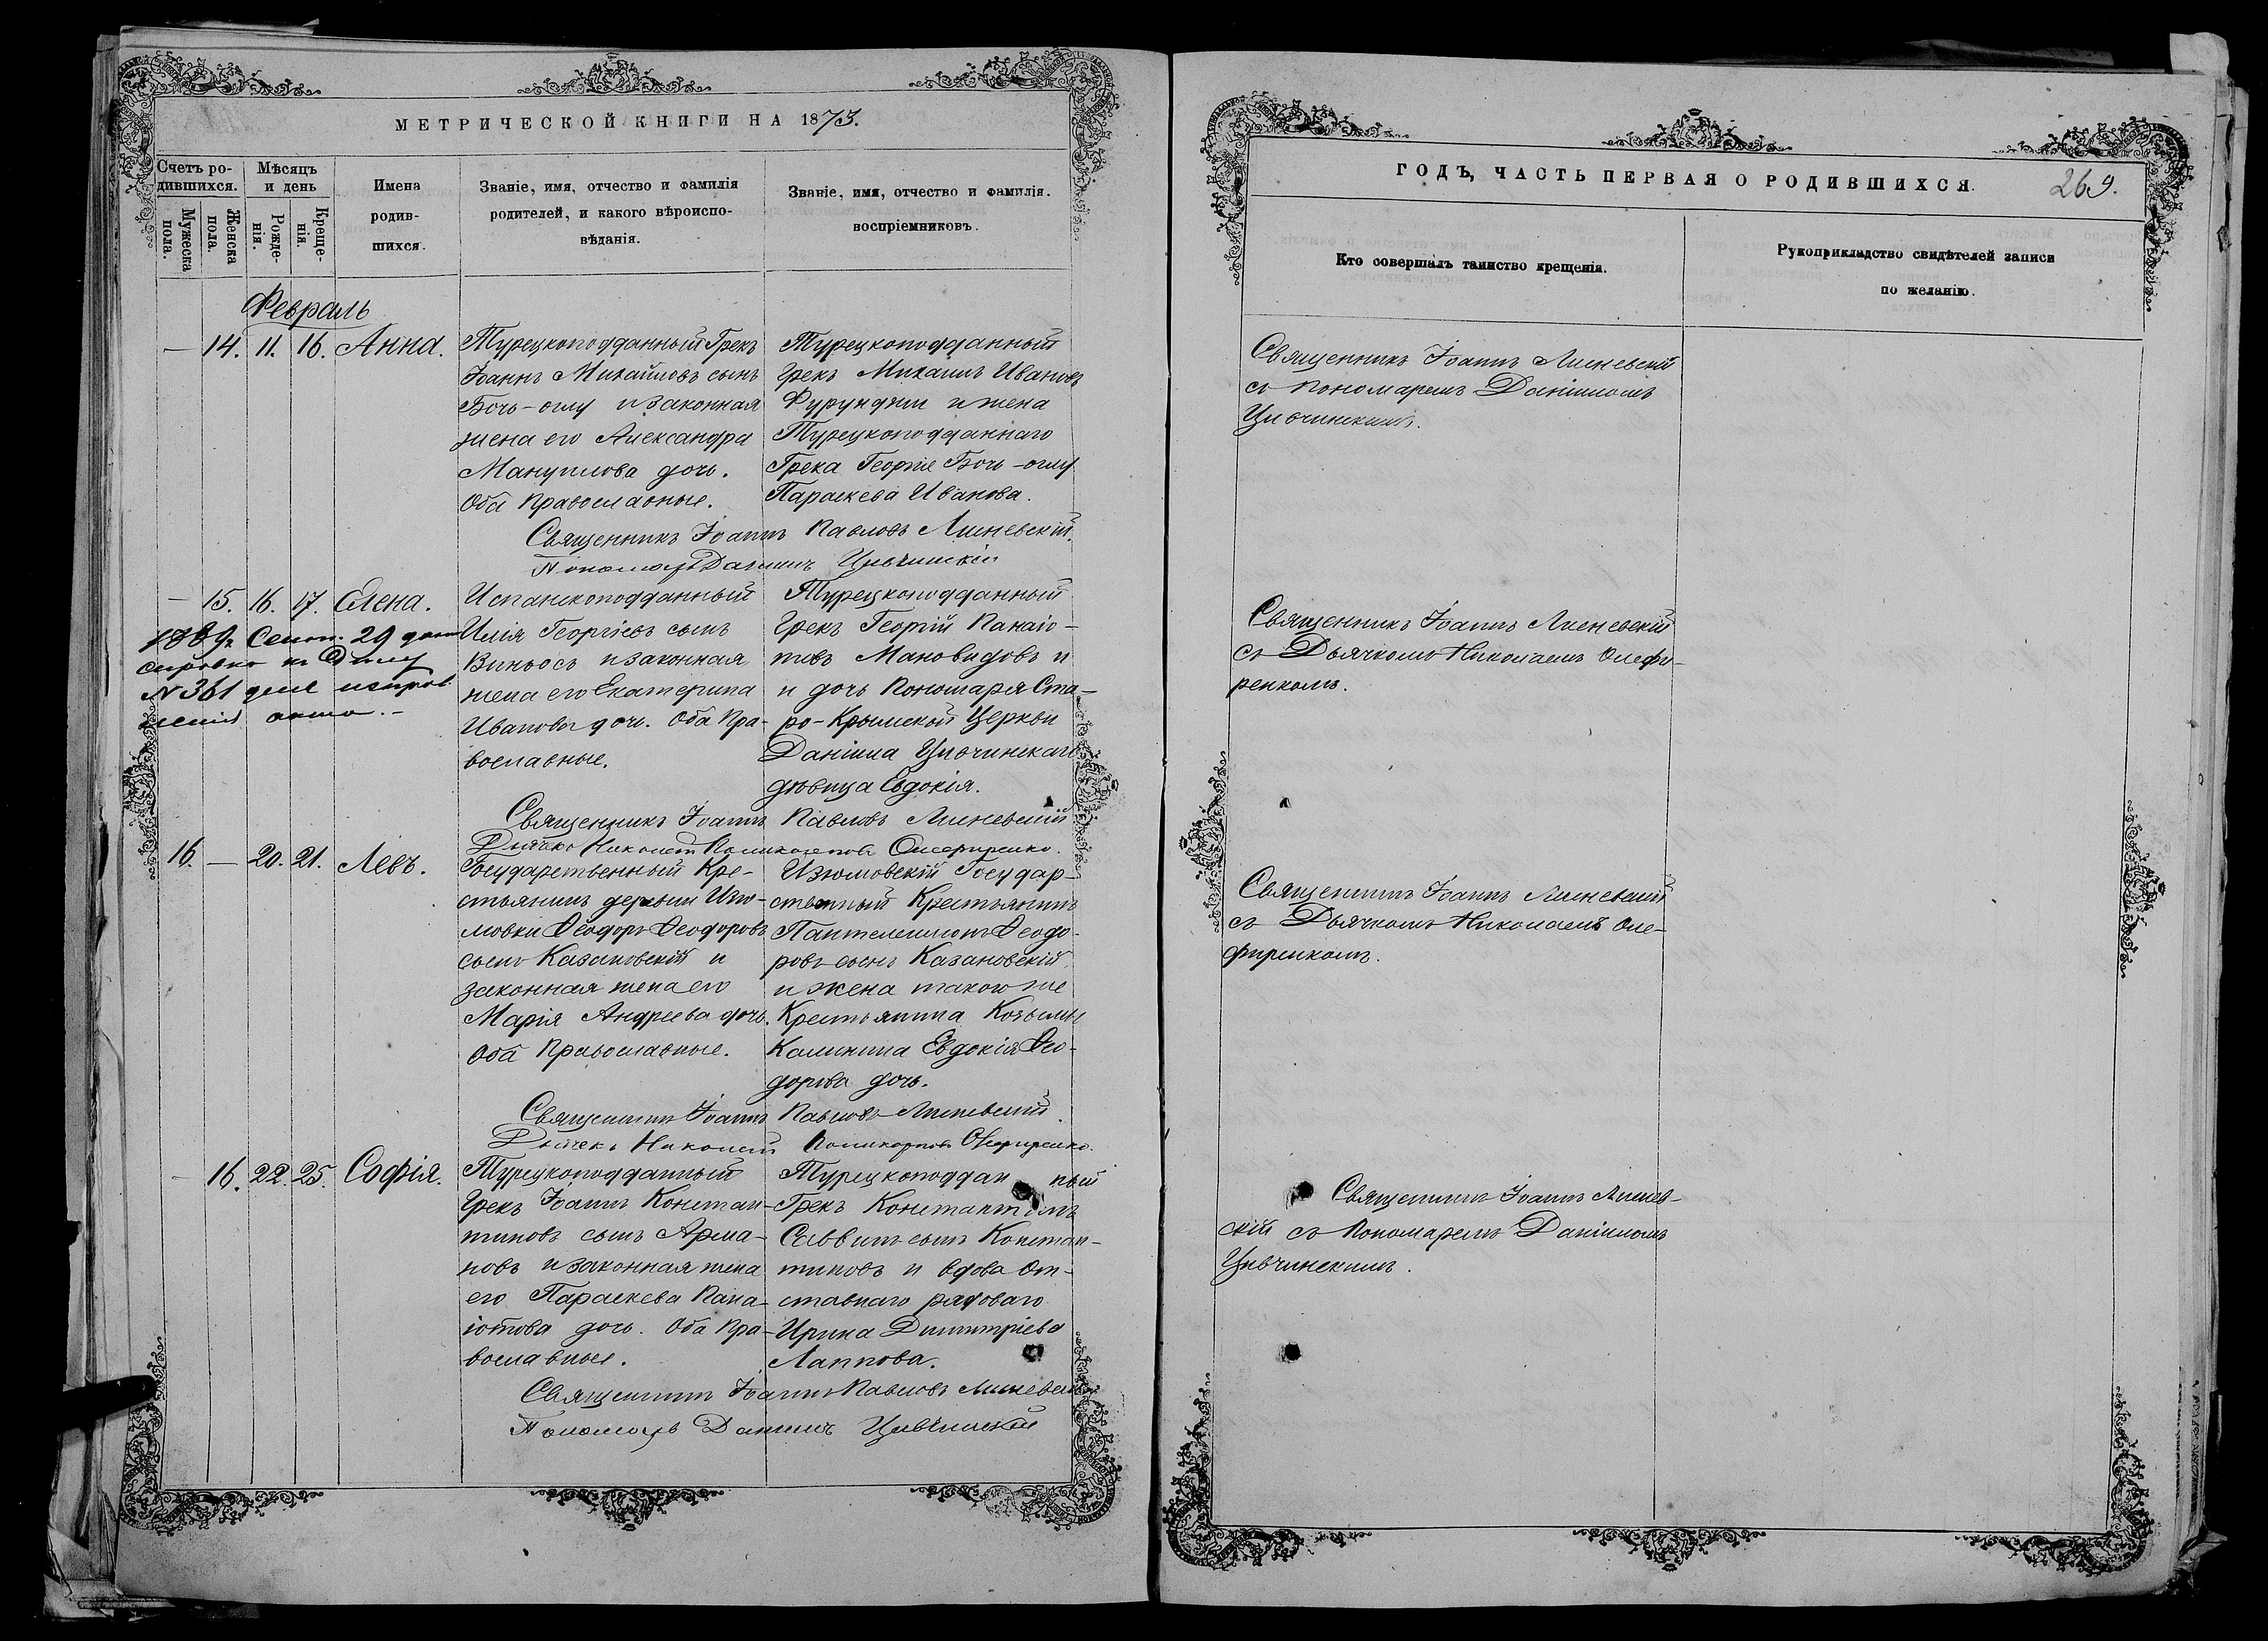 МЕТРИЧЕСКОЙ КНИГИ НА 1873.
Счетъ ро-
дившихся.
Мужеска
пола.
Женска
пола.
Мѣсяцъ
и день
Рожде-
нія.
Креще-
нія.
Имена
родив-
шихся.
Званіе, имя, отчество и фамилія
родителей, и какого вѣроиспо-
вѣданія.
Званіе, имя, отчество и фамилія.
воспріемниковъ.
Февраль
— 14. 11. 16. Анна.
Турецкоподданный Грекъ
Іоаннъ Михайловъ сынъ
Бочь-оглу и законная
жена его Александра
Мануилова дочь.
Оба Православные.
Турецкоподданный
Грекъ Михаилъ Ивановъ
Фурунджи и жена
Турецкоподданнаго
Грека Георгіе Бочь-оглу
Параскева Иванова.
Священникъ Іоаннъ Павловъ Лисневскій.
Пономарь Даніилъ Цывчинскій
— 15. 16. 17. Елена.
1889г. Сент. 29 дня
справка къ
N 361 для исправ
Испанскоподданный
Илія Георгіевъ сынъ
Виньосъ и законная
жена его Екатерина
Иванова дочь. Оба Пра-
вославные.
Турецкоподданный
Грекъ Георгій Панаіо-
товъ Мановидовъ и
и дочь Пономаря Ста-
ро-Крымской Церкви
Даніила Цывчинскаго
дѣвица Евдокія.
Священникъ Іоаннъ Павловъ Лисневскій
Дьячекъ Николай Поликарповъ Олефиренко.
16. — 20. 21. Левъ.
Государственный Кре-
стьянинъ деревни Изю-
мовки Ѳеодоръ Ѳеодоровъ
сынъ Казановскій и
законная жена его
Марія Андреева дочь.
Оба Православные.
Изюмовскій Государ-
ственный Крестьянинъ
Пантелеимонъ Ѳеодо-
ровъ сынъ Казановскій
и жена такого же
Крестьянина Козьмы
Калинина Евдокія Ѳео-
дорова дочь.
Священникъ Іоаннъ Павловъ Лисневскій
Дьячекъ Николай Поликарповъ Олефиренко.
— 16. 22. 25. Софія.
Турецкоподданный
Грекъ Іоаннъ Констан-
тиновъ сынъ Арма-
новъ и законная жена
его Параскева Пана-
іотова дочь. Оба Пра-
вославные.
Турецкоподдан ный
Грекъ Константинъ
Саввинъ сынъ Констан-
тиновъ и вдова От-
ставнаго рядоваго
Ирина Димитріева
Лаппова.
Священникъ Іоаннъ Павловъ Лисневскій
Пономарь Даніилъ Цывчинскій
ГОДЪ, ЧАСТЬ ПЕРВАЯ О РОДИВШИХСЯ.
269.
Кто совершалъ таинство крещенія.
Рукоприкладство свидѣтелей записи
по желанію.
Священникъ Іоаннъ Лисневскій
съ Пономаремъ Даніиломъ
Цывчинскимъ.
Священникъ Іоаннъ Лисневскій
съ Дьячкомъ Николаемъ Олефи-
ренкомъ.
Священникъ Іоаннъ Лисневскій
съ Дьячкомъ Николаемъ Оле-
фиренкомъ.
Священникъ Іоаннъ Лиснев-
скій съ Пономаремъ Даніиломъ
Цывчинскимъ.